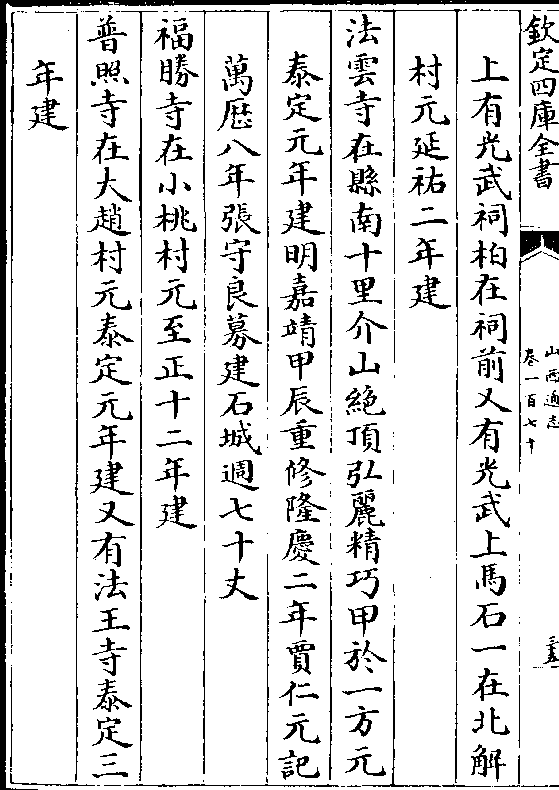 欽定四庫全書
山西通志
卷一百七十
上有光武祠柏在祠前又有光武上馬石一在北解
村元延祐二年建
法雲寺在縣南十里介山絶頂弘麗精巧甲於一方元
泰定元年建明嘉靖甲辰重修隆慶二年賈仁元記
萬厯八年張守良募建石城週七十丈
福勝寺在小桃村元至正十二年建
普照寺在大趙村元泰定元年建又有法王寺泰定三
年建